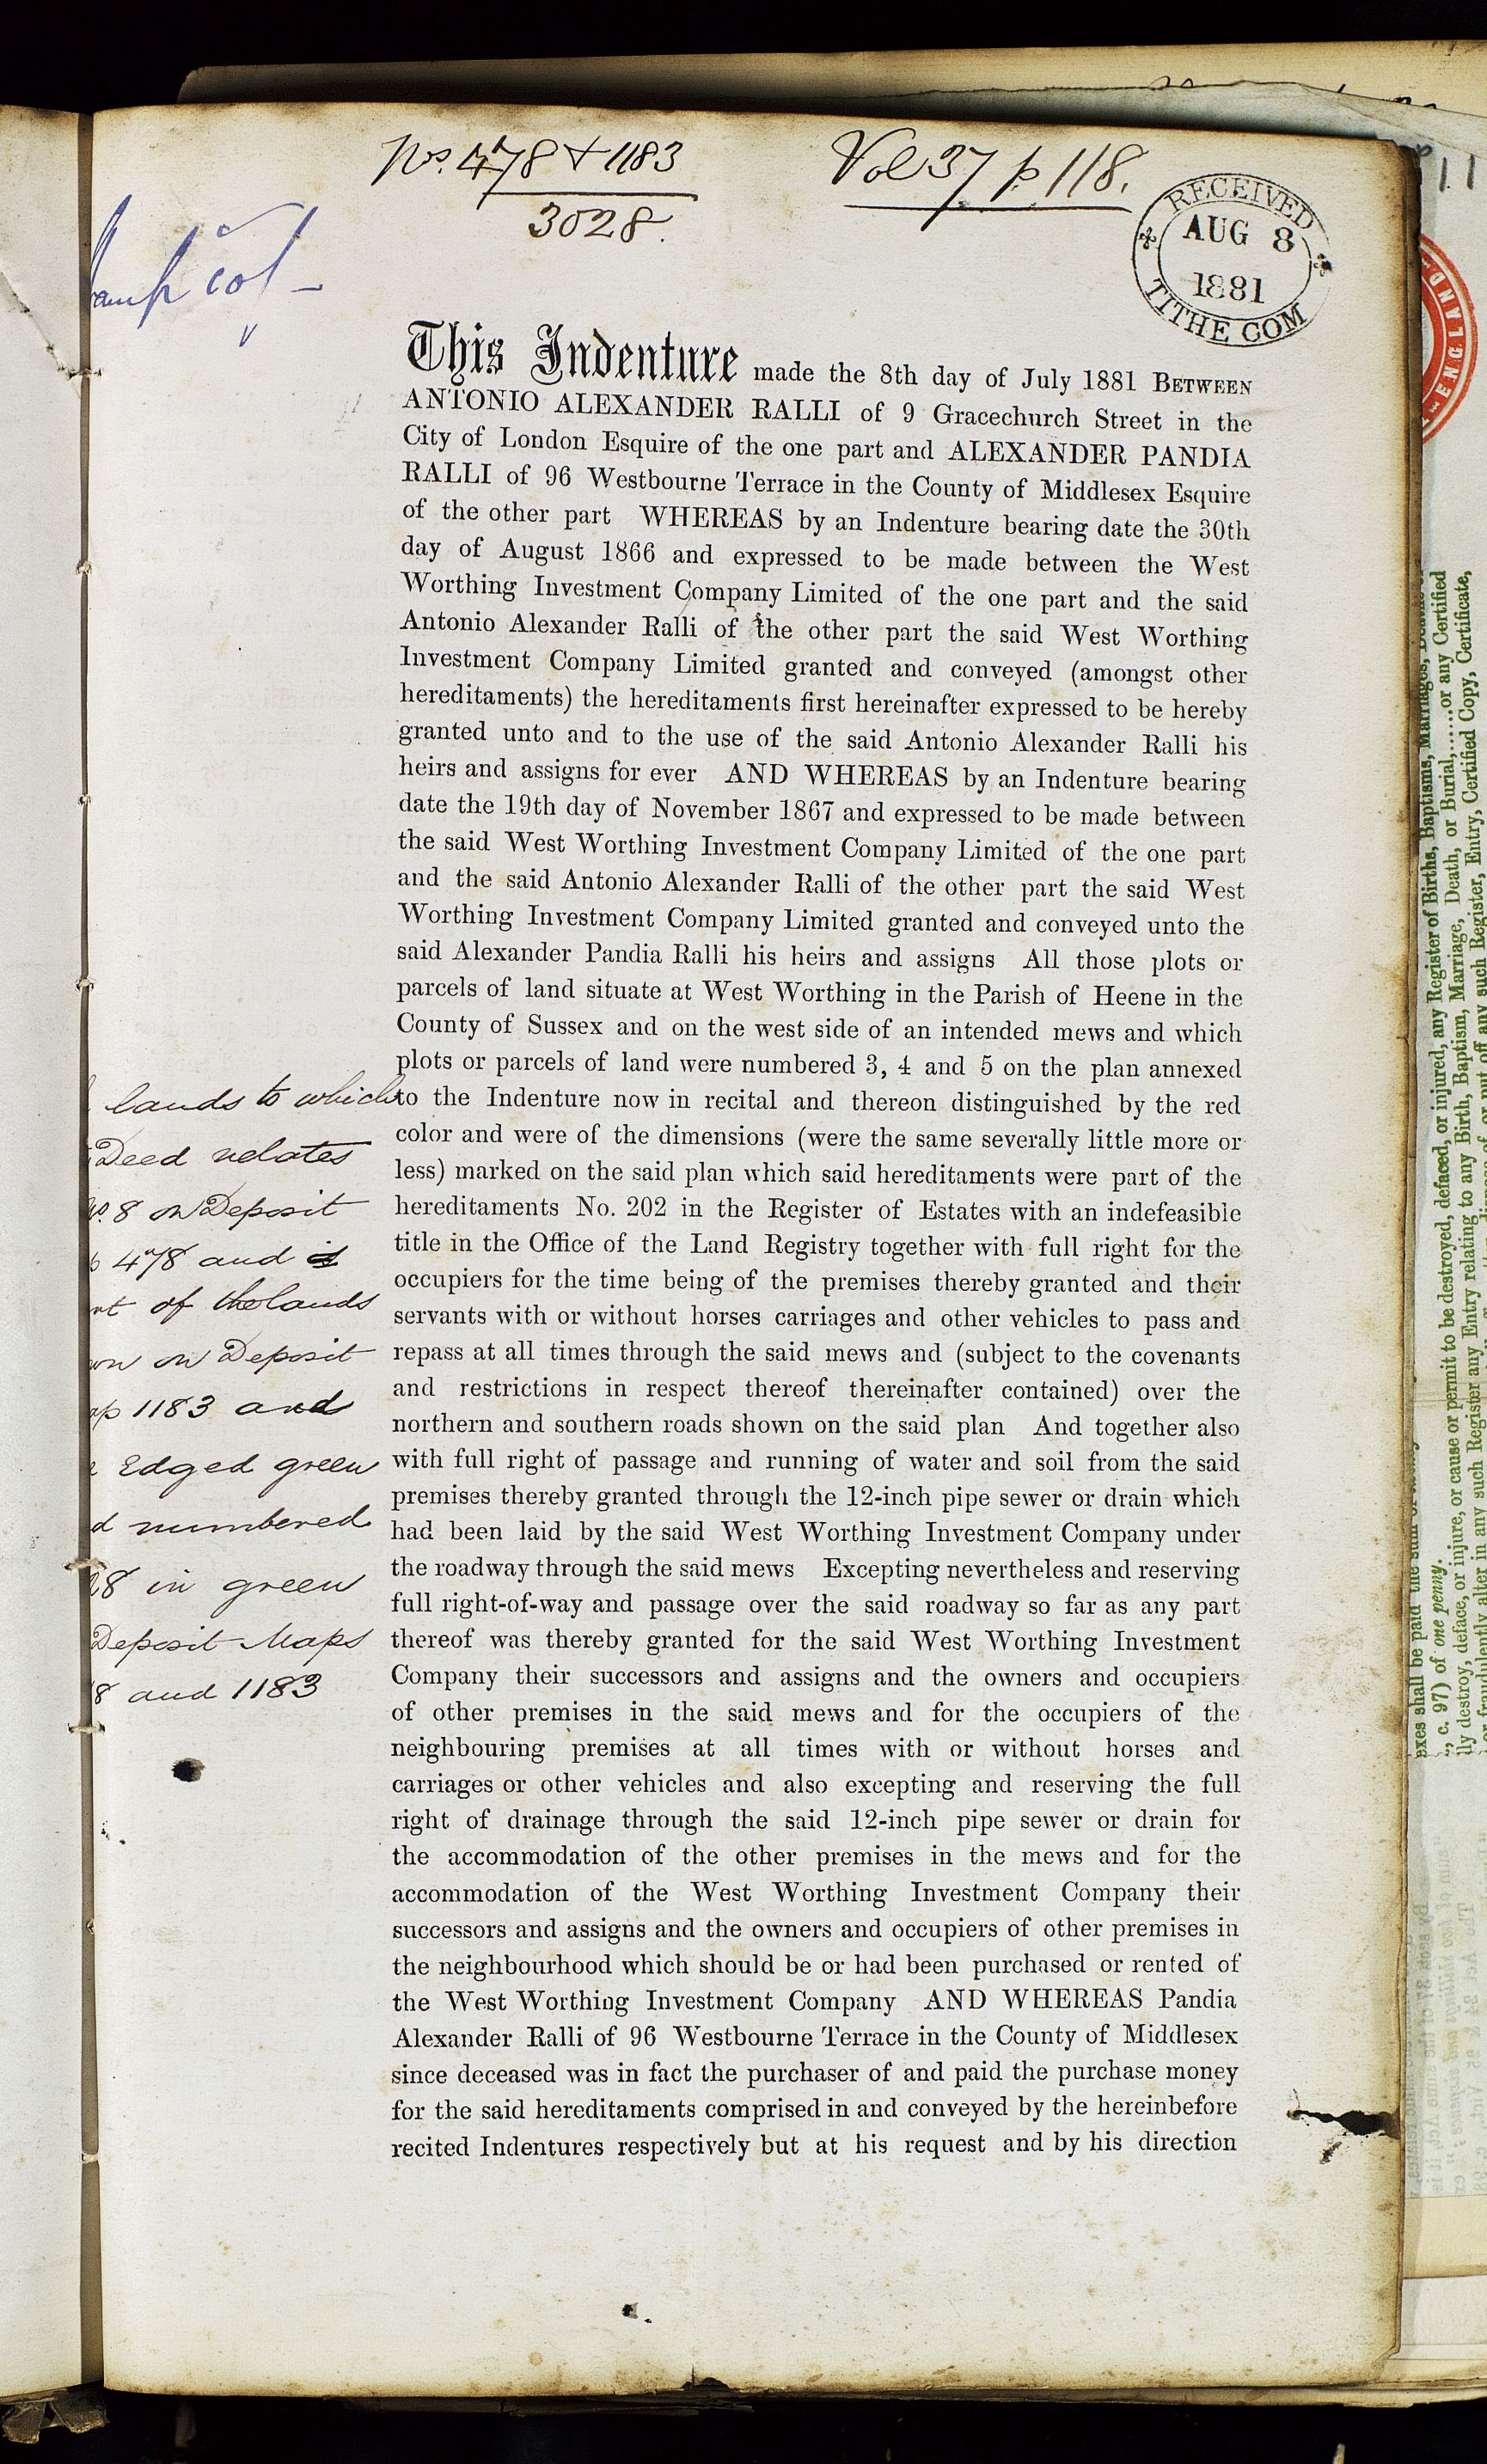 Nos. 478 + 1183
3028.
Vol 37 p. 118.
RECEIVED
AUG 8
1881
TITHE COM
This Indenture made the 8th day of July 1881 BETWEEN
ANTONIO ALEXANDER RALLI of 9 Gracechurch Street in the
City of London Esquire of the one part and ALEXANDER PANDIA
RALLI of 96 Westbourne Terrace in the County of Middlesex Esquire
of the other part WHEREAS by an Indenture bearing date the 30th
day of August 1866 and expressed to be made between the West
Worthing Investment Company Limited of the one part and the said
Antonio Alexander Ralli of the other part the said West Worthing
Investment Company Limited granted and conveyed (amongst other
hereditaments) the hereditaments first hereinafter expressed to be hereby
granted unto and to the use of the said Antonio Alexander Ralli his
heirs and assigns for ever AND WHEREAS by an Indenture bearing
date the 19th day of November 1867 and expressed to be made between
the said West Worthing Investment Company Limited of the one part
and the said Antonio Alexander Ralli of the other part the said West
Worthing Investment Company Limited granted and conveyed unto the
said Alexander Pandia Ralli his heirs and assigns All those plots or
parcels of land situate at West Worthing in the Parish of Heene in the
County of Sussex and on the west side of an intended mews and which
plots or parcels of land were numbered 3, 4 and 5 on the plan annexed
to the Indenture now in recital and thereon distinguished by the red
color and were of the dimensions (were the same severally little more or
less) marked on the said plan which said hereditaments were part of the
hereditaments No. 202 in the Register of Estates with an indefeasible
title in the Office of the Land Registry together with full right for the
occupiers for the time being of the premises thereby granted and their
servants with or without horses carriages and other vehicles to pass and
repass at all times through the said mews and (subject to the covenants
and restrictions in respect thereof thereinafter contained) over the
northern and southern roads shown on the said plan And together also
with full right of passage and running of water and soil from the said
premises thereby granted through the 12-inch pipe sewer or drain which
had been laid by the said West Worthing Investment Company under
the roadway through the said mews Excepting nevertheless and reserving
full right-of-way and passage over the said roadway so far as any part
thereof was thereby granted for the said West Worthing Investment
Company their successors and assigns and the owners and occupiers
of other premises in the said mews and for the occupiers of the
neighbouring premises at all times with or without horses and
carriages or other vehicles and also excepting and reserving the full
right of drainage through the said 12-inch pipe sewer or drain for
the accommodation of the other premises in the mews and for the
accommodation of the West Worthing Investment Company their
successors and assigns and the owners and occupiers of other premises in
the neighbourhood which should be or had been purchased or rented of
the West Worthing Investment Company AND WHEREAS Pandia
Alexander Ralli of 96 Westbourne Terrace in the County of Middlesex
since deceased was in fact the purchaser of and paid the purchase money
for the said hereditaments comprised in and conveyed by the hereinbefore
recited Indentures respectively but at his request and by his direction
lands to which
Deed relates
8 on Deposit
478 and
of the lands
on Deposit
1183 and
Edged green
numbered
in green
Deposit Maps
and 1183
ENGLAND
shall be paid the sum of
c. 97) of one penny.
destroy, deface, or injure, or cause or permit to be destroyed, defaced, or injured, any Register of Births, Baptisms, Marriages,
fraudulently alter in any such Register any Entry relating to any Birth, Baptism, Marriage, Death, or Burial,......or any Certified
any such Register, Entry, Certified Copy, Certificate,